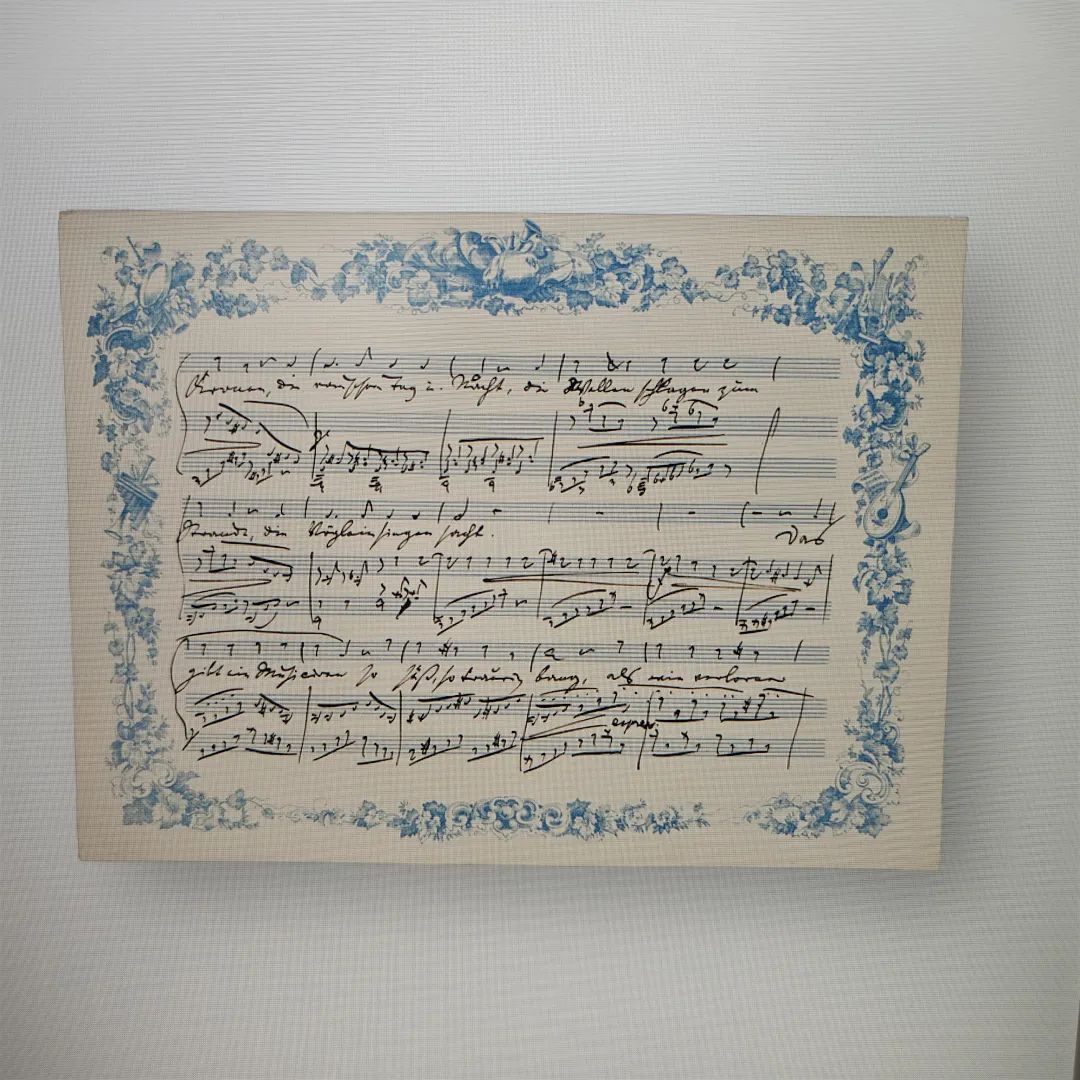 Kronen, die rauschen Tag u. Nacht, die Wellen schlagen zum
Strande, die Vöglein singen sacht. Das
gibt ein Musiciren so süß, so traurig bang, als wie verloren